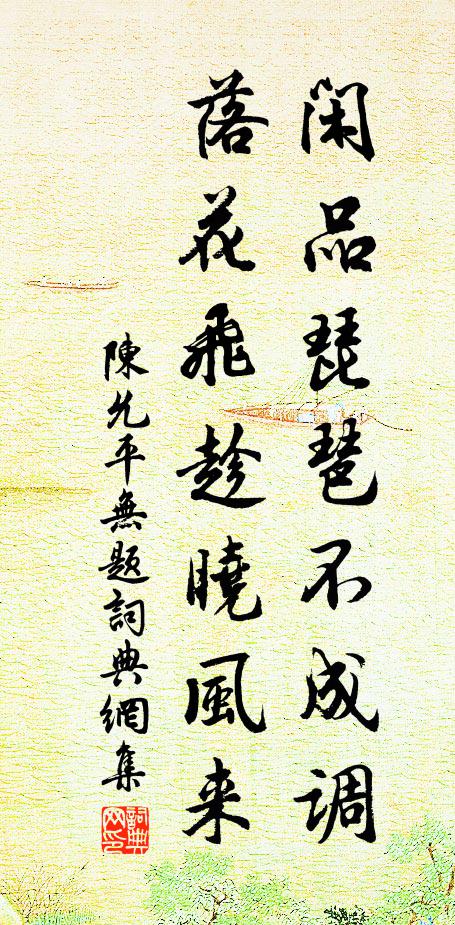 闲品琵琶不成调
落花飛趁曉風来
陳允平無题詞典網集
詞典网印